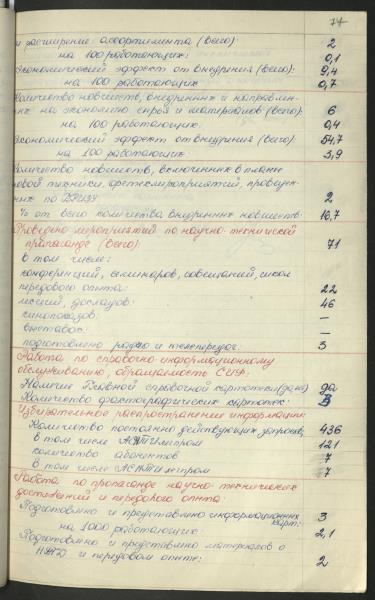 74
и расширение ассортимента (всего): 2
на 100 работающих: 0,1
Экономический эффект от внедрения (всего): 9,4
на 100 работающих 0,7
Количество новшеств, внедренных и направлен-
ных на экономию сырья и материалов (всего): 6
на 100 работающих: 0,4
Экономический эффект от внедрения (всего): 54,7
на 100 работающих 3,9
Количество новшеств, включенных в планы
новой техники, оргтехмероприятий, проведен-
ных по 2
% от всего количества внедренных новшеств: 10,7
Проведено мероприятий по научно-технической
пропаганде (всего): 71
в том числе:
конференций, семинаров, совещаний, школ
передового опыта: 22
лекций, докладов: 46
кинопоказов: –
выставок: –
подготовлено радио и телепередач: 3
Работа по справочно-информационному
обслуживанию, обращаемость СИФ:
Наличие Главной справочной картотеки (да, нет) да
Количество фактографических картотек: 3
Избирательное распространение информации:
Количество постоянно действующих запросов, 436
в том числе 121
количество абонентов 7
в том числе 7
Работа по пропаганде научно-технических
достижений и передового опыта:
Подготовлено и представлено информационных
карт: 3
на 1000 работающих: 2,1
Подготовлено и представлено материалов о
НТД и передовом опыте: 2